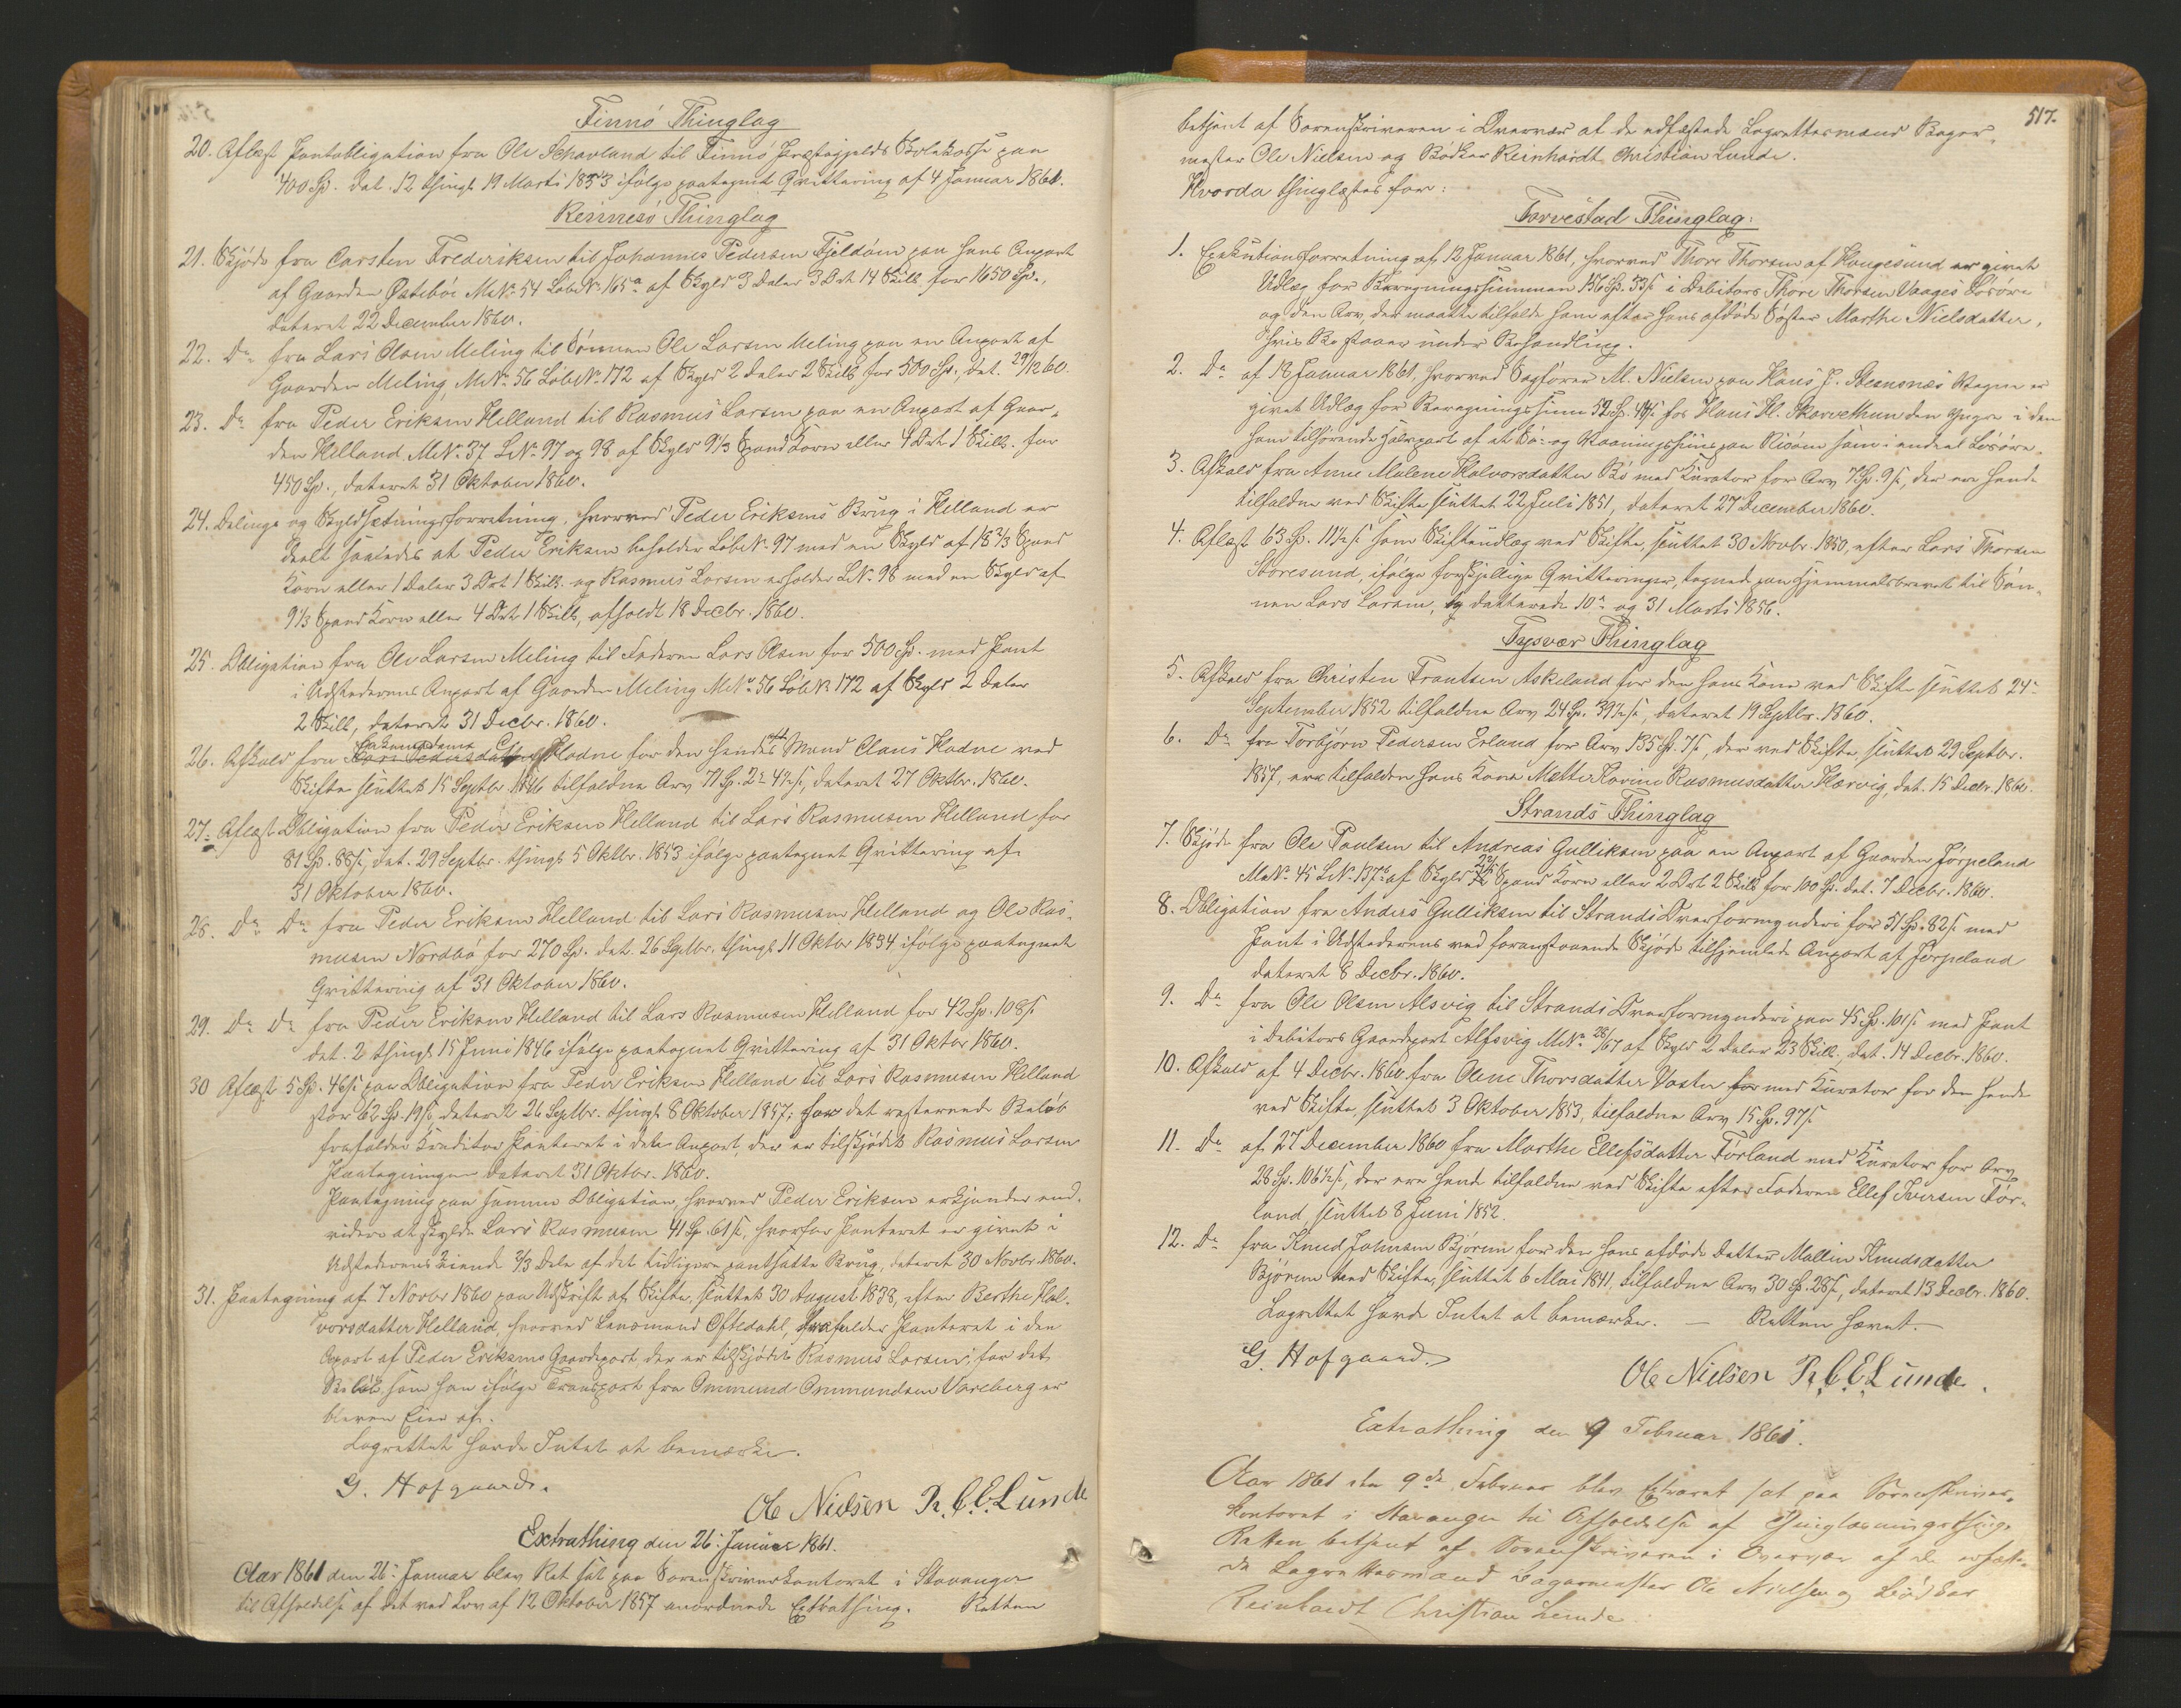 Finnö Thinglag
20. Aflæst Pantobligation fra Ole Schavland til Finnö Præstegjælds Skolekasse paa
400 Sp. dat. 12 thingl. 19 Marts 1853 ifølge paategnet Qvittering af 4 Januar 1861.
Rennesö Thinglag
21. Skjöde fra Carsten Frederiksen til Johannes Pedersen Fjeldöen paa hans Anpart
af Gaarden Östeböe M.No. 54 LøbeNo. 165a af Skyld 3 Daler 3 Ort 14 Skill. for 1650 Sp.,
dateret 22 December 1860.
22. Do. fra Lars Olsen Meling til Sönnen Ole Larsen Meling paa en Anpart af
Gaarden Meling, M.No. 56 LöbeNo. 172 af Skyld 2 Daler 2 Skill. for 500 Sp., dat. 29/12 60.
23. Do. fra Peder Eriksen Helland til Rasmus Larsen paa en Anpart af Gaar-
den Helland M.No. 37 L.No. 97 og 98 af Skyld 9 1/3 Spand Korn eller 4 Ort 1 Skill. for
450 Sp., dateret 31 Oktober 1860.
24. Delings og Skyldsætningsforretning, hvorved Peder Eriksens Brug i Helland er
deelt saaledes at Peder Eriksen beholder LøbeNo. 97 med en Skyld af 18 2/3 Spand
Korn eller 1 Daler 3 Ort 1 Skill. og Rasmus Larsen erholder L.No. 98 med en Skyld af
9 1/3 Spand Korn eller 4 Ort 1 Skill, afholdt 18 Decbr. 1860.
25. Obligation fra Ole Larsen Meling til Faderen Lars Olsen for 500 Sp. med Pant
i Udstederens Anpart af Gaarden Meling M.No. 56 LöbeNo. 172 af Skyld 2 Daler
2 Skill, dateret 31 Decbr. 1860.
26. Afkald fra Hodne for den hendes Mand Claus Hodne ved
Skifte sluttet 15 Septbr. 1846 tilfaldne Arv 71 Sp. 2 Ort 4 1/2 s, dateret 27 Oktbr. 1860.
27. Aflæst Obligation fra Peder Eriksen Helland til Lars Rasmusen Helland for
81 Sp. 88 s, dat. 29 Septbr. thingl. 5 Oktbr. 1853 ifølge paategnet Qvittering af
31 Oktober 1860.
28. Do. Do. fra Peder Eriksen Helland til Lars Rasmusen Helland og Ole Ras-
musen Nordbö for 270 Sp. dat. 26 Septbr. thingl. 11 Oktbr 1854 ifølge paategnet
Qvittering af 31 Oktober 1860.
29. Do. Do. fra Peder Eriksen Helland til Lars Rasmusen Helland for 42 Sp. 108 s
dat. 2 thingl. 15 Juni 1846 ifølge paategnet Qvittering af 31 Oktbr 1860.
30 Aflæst 5 Sp. 46 s paa Obligation fra Peder Eriksen Helland til Lars Rasmusen Helland
stor 62 Sp. 19 s, dateret 26 Septbr. thingl. 8 Oktober 1857; for det resterende Beløb
frafalder Kreditor Panteret i den Anpart, der er tilskjödet Rasmus Larsen
Paategningen dateret 31 Oktbr. 1860.
Paategning paa samme Obligation, hvorved Peder Eriksen erkjender end-
videre at skylde Lars Rasmusen 41 Sp. 61 s, hvorfor Panteret er givet i
Udstederens eiende 2/3 Dele af det tidligere pantsatte Brug, dateret 30 Novbr. 1860.
31. Paategning af 7 Novbr 1860 paa Udskrift af Skifte, sluttet 30 August 1838, efter Berthe Hal-
vorsdatter Helland, hvorved Lensmand Oftedahl, frafalder Panteret i den
Apart af Peder Eriksens Gaardpart, der er tilskjödet Rasmus Larsen, for det
Beløb, som han ifølge Transport fra Ommund Ommundsen Vareberg er
bleven Eier af.
Lagrettet havde Intet at bemærke.
G. Hofgaard.
Ole Nielsen R. C. C. Lunde
Extrathing den 26: Januar 1861.
Aar 1861 den 26: Januar blev Ret sat paa Sorenskriverkontoret i Stavanger
til Afholdelse af det ved Lov af 12 Oktober 1857 anordnede Extrathing. Retten
517.
betjent af Sorenskriveren i Overvær af de edfæstede Lagrettesmænd Bager-
mester Ole Nielsen og Bödker Reinhardt Christian Lunde.
Hvorda thinglæstes for:
Torvestad Thinglag:
1. Exekutionsforretning af 12 Januar 1861, hvorved Thore Thorsen af Haugesund er givet
Udlæg for Beregningssummen 156 Sp. 53 s i Debitors Thore Thorsen Vaages Lösöre
og den Arv, der maatte tilfalde ham efter hans afdöde Söster Marthe Nielsdatter,
hvis Bo staaer under Behandling.
2. Do. af 18 Januar 1861, hvorved Sagförer M. Nielsen paa Hans J. Steensnæs Vegne er
givet Udlæg for Beregningssum 52 Sp. 44 s hos Hans Hl. Skarvethun den yngre i den
ham tilhørende Halvpart af et Sö- og Vaaningshuus paa Risöen samt i endeel Lösöre.
3. Afkald fra Anne Malene Halvorsdatter Bö med Kurator for Arv 7 Sp. 9 s, der ere hende
tilfaldne ved Skifte sluttet 22 Juli 1851, dateret 27 December 1860.
4. Aflæst 63 Sp. 11 1/2 s som Skifteudlæg ved Skifte, sluttet 30 Novbr. 1850, efter Lars Thorsen
Storesund, ifølge forskjellige Qvitteringer, tegnede paa Hjemmelsbrevet til Sön-
nen Lars Larsen, og datterede 10de og 31 Marts 1856.
Tysvær Thinglag
5. Afkald fra Christen Frantsen Askeland for den hans Kone ved Skifte sluttet 24de
September 1852 tilfaldne Arv 24 Sp. 39 1/2 s, dateret 19 Septbr. 1860.
6. Do. fra Torbjörn Pedersen Erland for Arv 135 Sp. 7 s, der ved Skifte, sluttet 29 Septbr.
1857, ere tilfalden hans Kone Mette Karine Rasmusdatter Hervig, dat. 15 Decbr. 1860.
Strands Thinglag
7. Skjöde fra Ole Paulsen til Andreas Gulliksen paa en Anpart af Gaarden Jörpeland
M.No. 45 L.No. 137c af Skyld Spand Korn eller 2 Ort 2 Skill for 100 Sp. dat. 7 Decbr. 1860.
8. Obligation fra Anders Gulliksen til Strands Overformynderi for 51 Sp. 82 s. med
Pant i Udstederens ved foranstaaende Skjöde tilhjemlede Anpart af Jörpeland
dateret 8 Decbr. 1860.
9. Do. fra Ole Olsen Alsvig til Strands Overformynderi paa 45 Sp. 101 s. med Pant
i Debitors Gaardpart Alfsvig M.No. 28/67 af Skyld 2 Daler 23 Skill., dat. 14 Decbr. 1860.
10. Afkald af 4 Decbr. 1860 fra Olene Thorsdatter Vaster for med Kurator for den hende
ved Skifte, sluttet 3 Oktober 1853, tilfaldne Arv 15 Sp. 97 s
11. Do. af 27 December 1860 fra Marthe Ellefsdatter Förland med Kurator for Arv
28 Sp. 106 1/2 s, der ere hende tilfaldne ved Skifte efter Faderen Ellef Iversen För-
land, sluttet 8 Juni 1852.
12. Do. fra Knud Johnsen Björem for den hans afdöde Datter Mallin Knudsdatter
Björem ved Skifte, sluttet 6 Mai 1841, tilfaldne Arv 30 Sp. 28 s, dateret 13 Decbr. 1860.
Lagrettet havde Intet at bemærke. — Retten hævet. —
G. Hofgaard.
Ole Nielsen R. C. C. Lunde.
Extrathing den 9 Februar 1861.
Aar 1861 den 9de Februar blev Extraret sat paa Sorenskriver-
kontoret i Stavanger til Afholdelse af Thinglæsningsthing.
Retten betjent af Sorenskriveren i Overvær af de edfæste-
de Lagrettesmænd Bagermester Ole Nielsen og Bödker
Reinhardt Christian Lunde